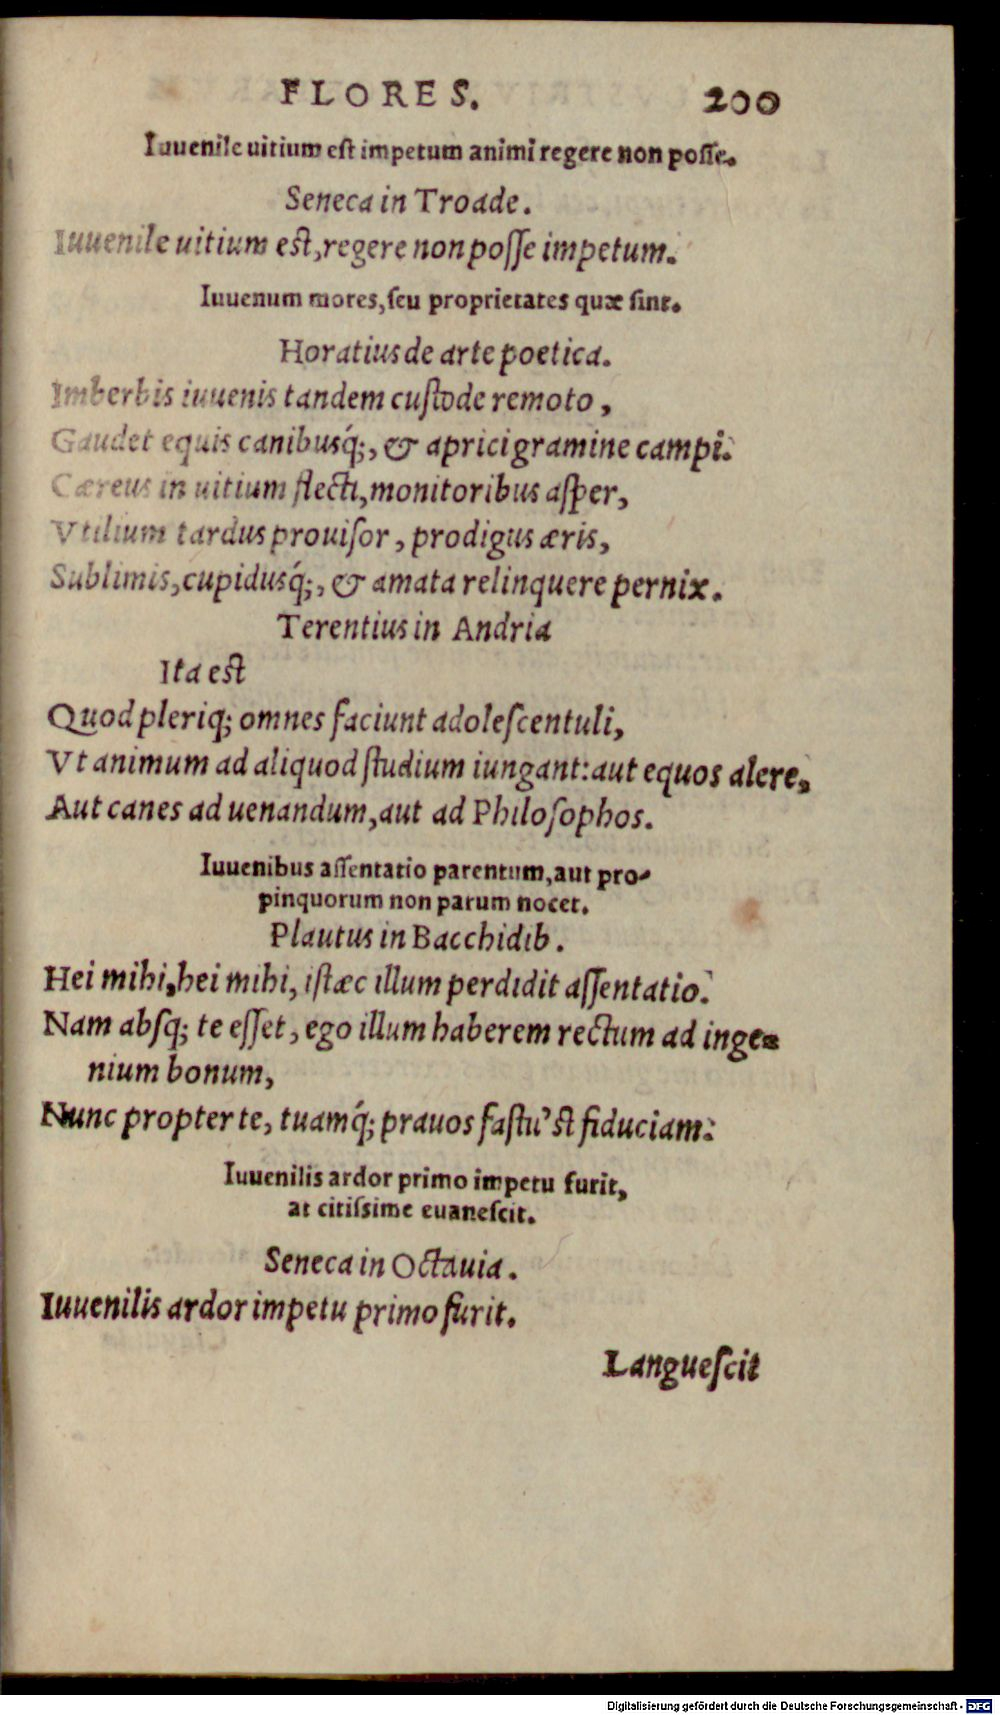 FLORES. 200
Iuuenile uitium est impetum animi regere non posse.
Seneca in Troade.
Iuuenile uitium est, regere non posse impetum.
Iuuenum mores, seu proprietates quæ sint.
Horatius de arte poetica.
Imberbis iuuenis tandem custode remoto,
Gaudet equis canibusq́;, & aprici gramine campi.
Cæreus in uitium flecti, monitoribus asper,
Vtilium tardus prouisor, prodigus æris,
Sublimis, cupidusq́;, & amata relinquere pernix.
Terentius in Andria
Ita est
Quod pleriq; omnes faciunt adolescentuli,
Vt animum ad aliquod studium iungant: aut equos alere,
Aut canes ad uenandum, aut ad Philosophos.
Iuuenibus assentatio parentum, aut pro-
pinquorum non parum nocet.
Plautus in Bacchidib.
Hei mihi, hei mihi, istæc illum perdidit assentatio.
Nam absq; te esset, ego illum haberem rectum ad inge-
nium bonum,
Nunc propter te, tuamq́; prauos fastu' st fiduciam.
Iuuenilis ardor primo impetu furit,
at citissime euanescit.
Seneca in Octauia.
Iuuenilis ardor impetu primo furit.
Languescit
Digitalisierung gefördert durch die Deutsche Forschungsgemeinschaft - DFG